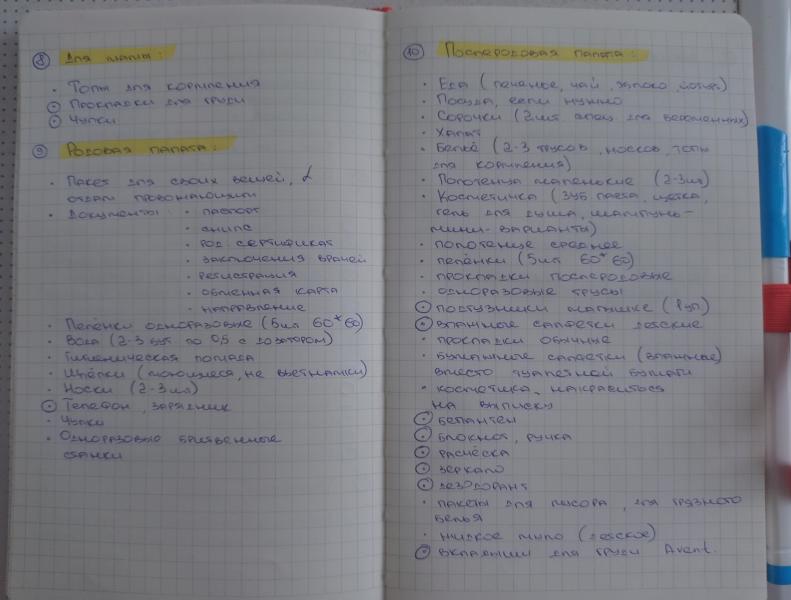 8 Для мамы:
· Топы для кормления
· Прокладки для груди
· Чулки
9 Родовая палата:
· Пакет для своих вещей,
отдам провожающим
· Документы: · паспорт
· снилс
· род сертификат
· заключения врачей
· регистрация
· обменная карта
· направление
· Пелёнки одноразовые (5шт 60*60)
· Вода (2-3 бут по 0,5 с дозатором)
· Гигиеническая помада
· Шлёпки (моющиеся, не вьетнамки)
· Носки (2-3шт)
· Телефон, зарядник
· Чулки
· Одноразовые бритвенные
станки
10 Послеродовая палата:
· Еда (печенье, чай, яблоко, йогурт)
· Посуда, если нужно
· Сорочки (2шт спец для беременных)
· Халат
· Бельё (2-3 трусов, носков, топы
для кормления)
· Полотенца маленькие (2-3шт)
· Косметичка (зуб паста, щётка,
гель для душа, шампунь-
мини-варианты)
· полотенце среднее
· пелёнки (5шт 60*60)
· прокладки послеродовые
· одноразовые трусы
· подгузники малышке (1уп)
· влажные салфетки детские
· прокладки обычные
· бумажные салфетки (влажные)
вместо туалетной бумаги
· косметика, накраситься
на выписку
· бепантен
· блокнот, ручка
· расчёска
· зеркало
· дезодорант
· пакеты для мусора, для грязного
белья
· жидкое мыло (детское)
· вкладыши для груди Avent.